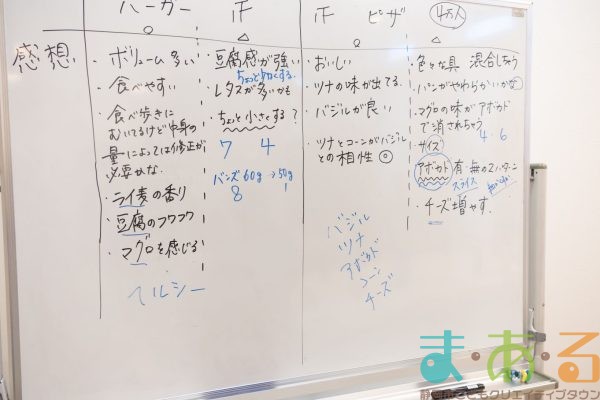 バーガー
正
正
ピザ
4万人
○
△
○
△
感想
・ボリューム多い
・食べやすい
・食べ歩きに
むいてるけど中身の
量によっては修正が
必要かな。
・ライ麦の香り
・豆腐のフワフワ
・マグロを感じる
ヘルシー
・豆腐感が強い
ちょっと
・レタスが多いかも
・ちょっと小さくする?
7 4
バンズ60g→50g
8
・おいしい
・ツナの味が出てる.
・バジルが良い
・ツナとコーンがバジル
との相性◎
バジル
ツナ
アボカド
コーン
チーズ
・色々な具 混合しちゃう
・パンがやわらかいかな
・マグロの味がアボカド
で消されちゃう
サイズ 4・6
アボカド有・無の2パターン
スライス
・チーズ増やす.
ま・あ・る
静岡市こどもクリエイティブタウン